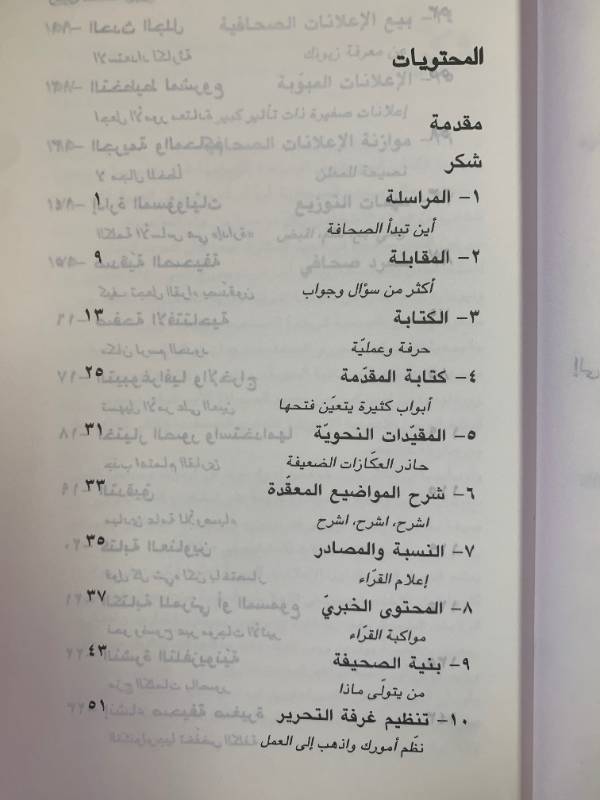 المحتويات
مقدمة
شكر
١- المراسلة ١
أين تبدأ الصحافة
٢- المقابلة ٩
أكثر من سؤال وجواب
٣- الكتابة ١٣
حرفة وعمليّة
٤- كتابة المقدّمة ٢٥
أبواب كثيرة يتعيّن فتحها
٥- المقيّدات النحويّة ٣١
حاذر العكّازات الضعيفة
٦- شرح المواضيع المعقّدة ٣٣
اشرح، اشرح، اشرح
٧- النسبة والمصادر ٣٥
إعلام القرّاء
٨- المحتوى الخبريّ ٣٧
مواكبة القرّاء
٩- بنية الصحيفة ٤٣
من يتولّى ماذا
١٠- تنظيم غرفة التحرير ٥١
نظّم أمورك واذهب إلى العمل